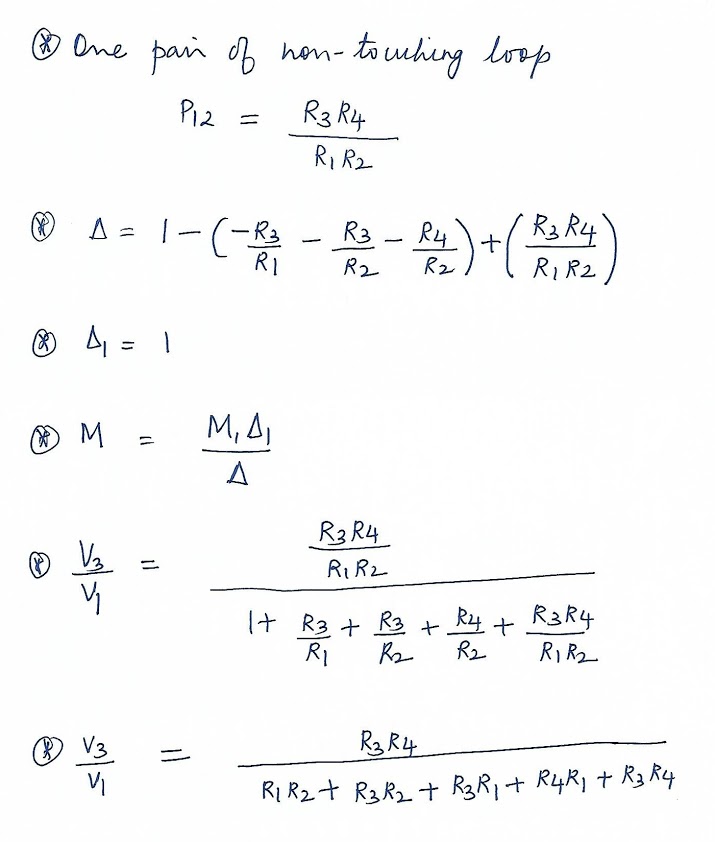 ⊛ One pair of non-touching loop
P12 = R3 R4 / R1 R2
⊛ Δ = 1 - (-R3/R1 - R3/R2 - R4/R2) + (R3 R4 / R1 R2)
⊛ Δ1 = 1
⊛ M = M1 Δ1 / Δ
⊛ V3/V1 = (R3 R4 / R1 R2) / (1 + R3/R1 + R3/R2 + R4/R2 + R3 R4 / R1 R2)
⊛ V3/V1 = R3 R4 / (R1 R2 + R3 R2 + R3 R1 + R4 R1 + R3 R4)